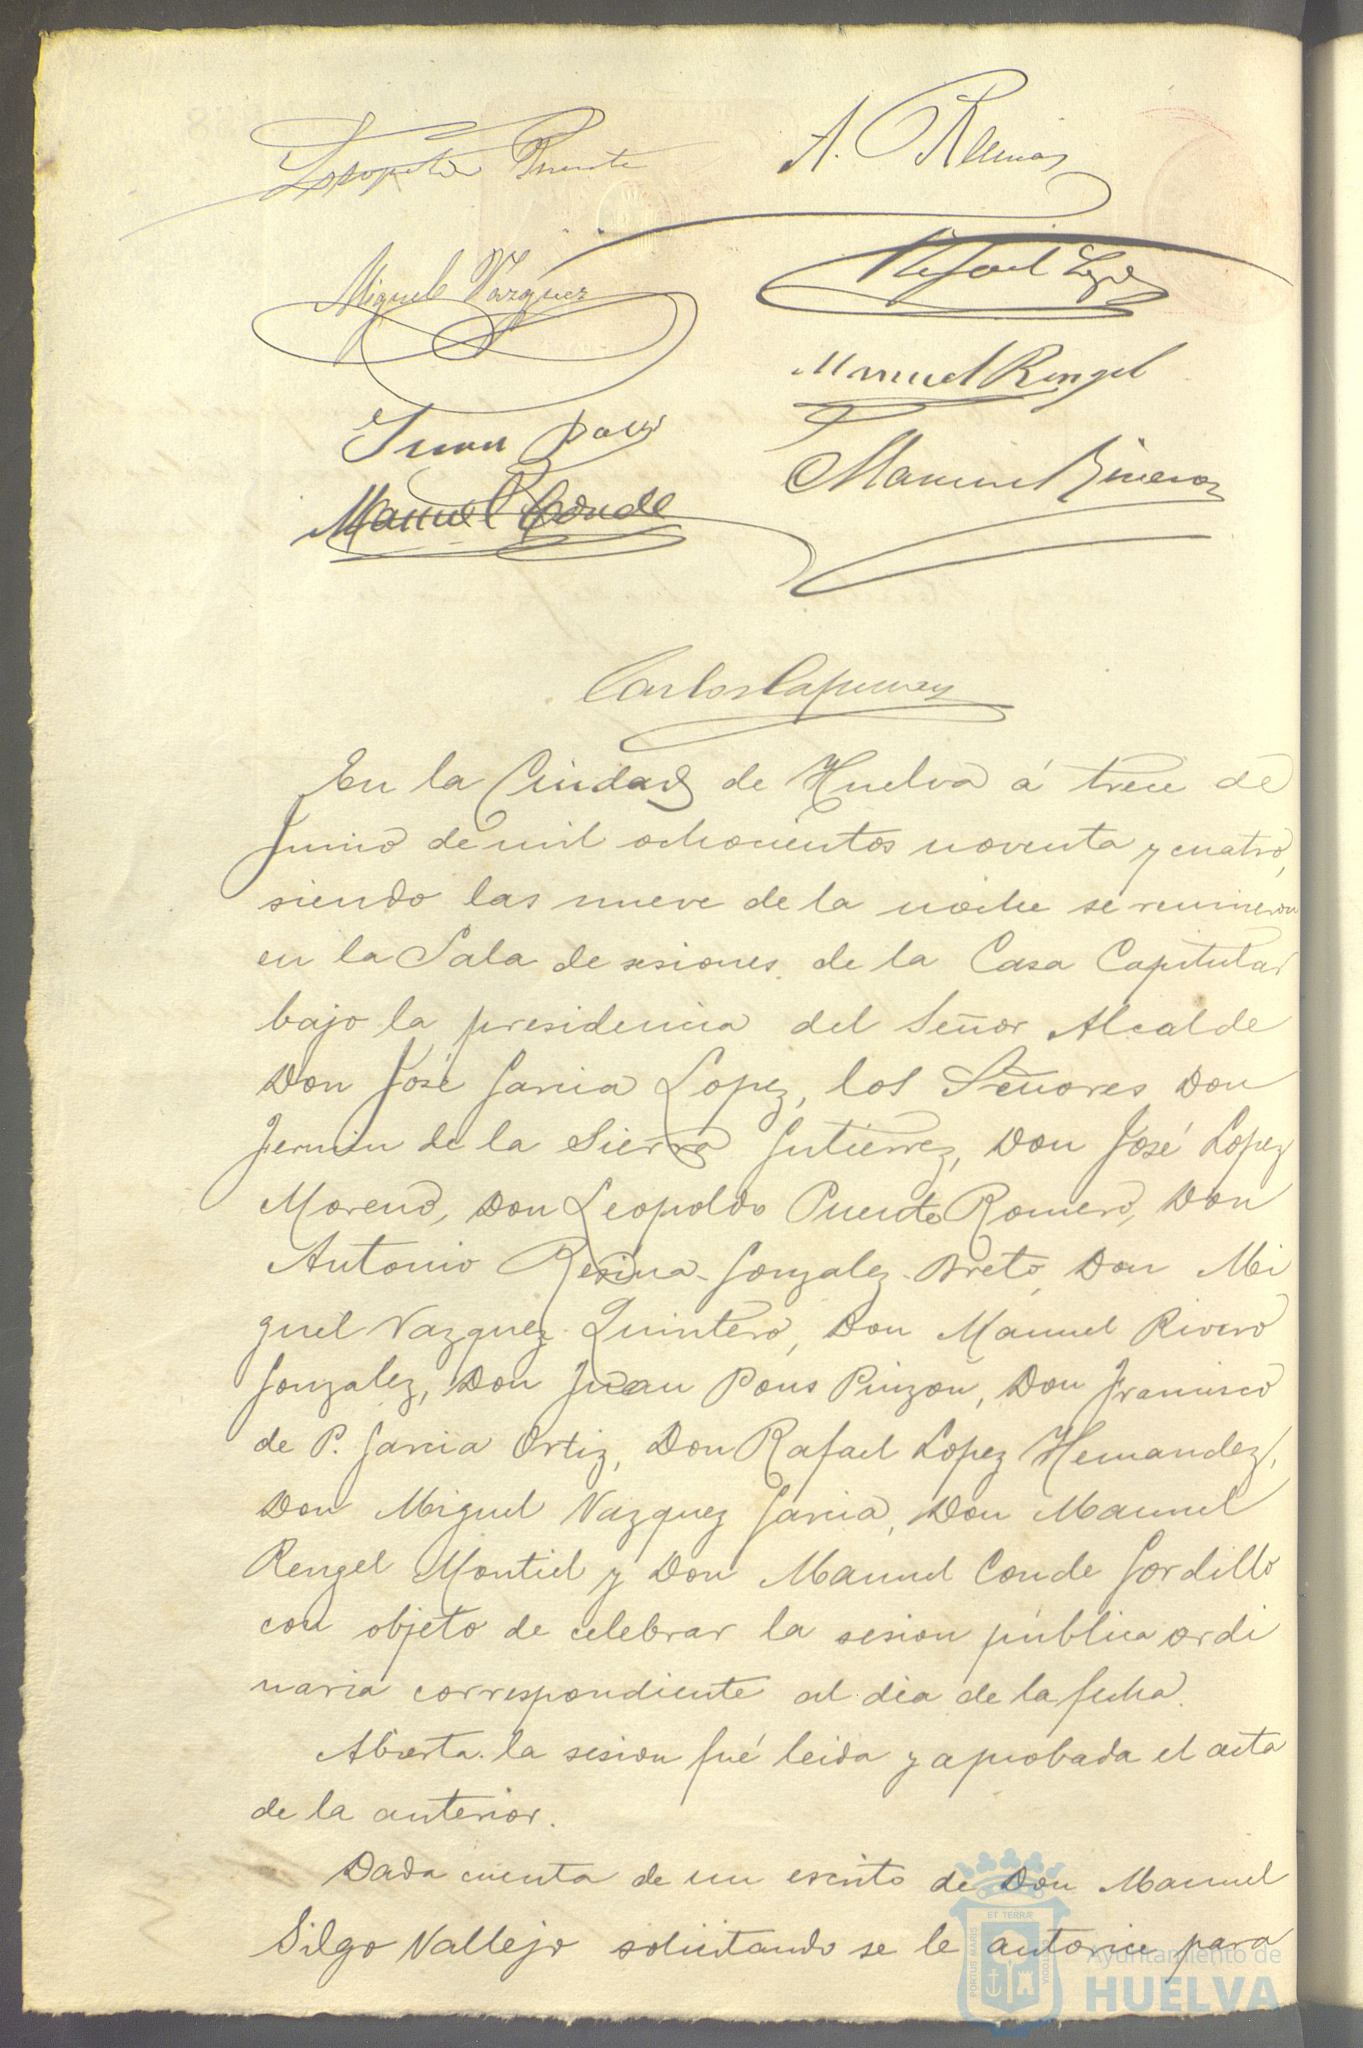 Leopoldo Puente
A.
Miguel Vazquez
Rafael Lopez
Manuel Rengel
Juan Pons
Manuel Rivero
Manuel Conde
Carlos
En la Ciudad de Huelva á trece de
Junio de mil ochocientos noventa y cuatro,
siendo las nueve de la noche se reunieron
en la Sala de sesiones de la Casa Capitular
bajo la presidencia del Señor Alcalde
Don José Garcia Lopez, los Señores Don
Fermin de la Sierra Gutierrez, Don José Lopez
Moreno, Don Leopoldo Puente Romero, Don
Antonio Resina Gonzalez Breto, Don Mi
guel Vazquez Quintero, Don Manuel Rivero
Gonzalez, Don Juan Pons Pinzon, Don Francisco
de P. Garcia Ortiz, Don Rafael Lopez Hernandez,
Don Miguel Vazquez Garcia, Don Manuel
Rengel Montiel y Don Manuel Conde Gordillo
con objeto de celebrar la sesion pública ordi
naria correspondiente al dia de la fecha.
Abierta la sesion fué leida y aprobada el acta
de la anterior.
Dada cuenta de un escrito de Don Manuel
Silgo Vallejo solicitando se le autorice para
PORTUS MARIS ET TERRÆ CUSTODIA
Ayuntamiento de
HUELVA